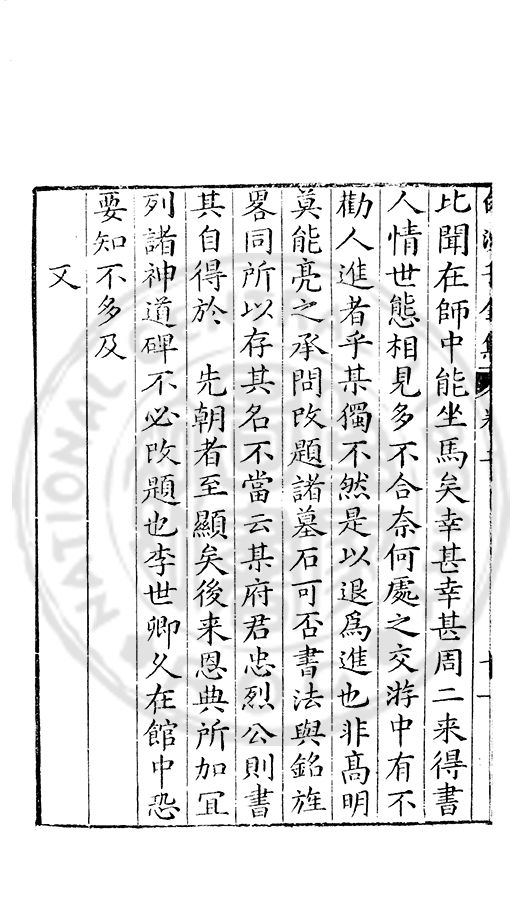 比聞在師中能坐馬矣幸甚幸甚周二来得書
人情世態相見多不合奈何處之交游中有不
勸人進者乎某獨不然是以退爲進也非髙明
莫能亮之承問改題諸墓石可否書法與銘旌
畧同所以存其名不當云某府君忠烈公則書
其自得於　先朝者至顯矣後来恩典所加冝
列諸神道碑不必改題也李世卿久在館中恐
要知不多及
又
NATIONAL